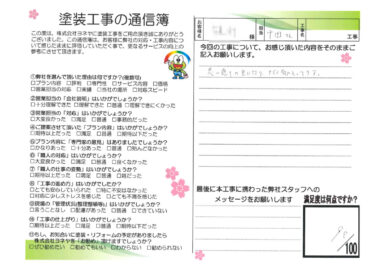 塗装工事の通信簿
この度は、株式会社ヨネヤに塗装工事をご用命頂き誠にありがとう
ございました。この通信は、お客様に弊社の対応・工事内容に
ついて感じたままに評価していただく事で、更なるサービスの向上の
参考にさせて頂きます。
①弊社を選んで頂いた理由は何ですか?(複数可)
□プラン内容 □評判 □専門性 □サービスの内容 □価格
□営業担当の対応 □実績 □当社の雰囲 □対応スピード
②営業担当の「会社説明」はいかがでしょうか?
□十分理解できた □理解できた □普通 □理解できにくかった
③営業担当の「対応」はいかがでしょうか?
□大変良かった □満足 □普通 □事務的だった
④ご提案させて頂いた「プラン内容」はいかがでしょうか?
□期待以上 □満足 □普通 □期待以下だった
⑤プラン内容に「専門家の意見」はありましたでしょうか?
□かなりあった □十分あった □普通 □殆んどなかった
⑥「職人の対応」はいかがでしょうか?
□大変良かった □満足 □普通 □良くなかった
⑦「職人の仕事の姿勢」はいかがでしょうか?
□期待以上だった □満足 □普通 □期待以下
⑧「工事の進め方」はいかがでしたか?
□とても安心していられた □特に不安はなかった
□対応に少しストレスを感じた □とても不満を感じた
⑨現場の「管理状況(整理整頓等)」はいかがでしょうか?
□言うことなし □配慮があった □普通 □できていない
⑩「工事の仕上がり」はいかがでしょうか?
□期待以上 □満足 □普通 □期待以下
⑪もし、お知合いに塗装・リフォームの予定がありましたら
株式会社ヨネヤを「お勧め」頂けますでしょうか?
□ぜひ勧めたい □勧めてもいい □わからない □勧められない
お客様名
様
工事名
工事
今回の工事について、お感じ頂いた内容をそのままご
記入お願いします。
最後に本工事に携わった弊社スタッフへの
メッセージをお願いします
満足度は何点ですか?
/100